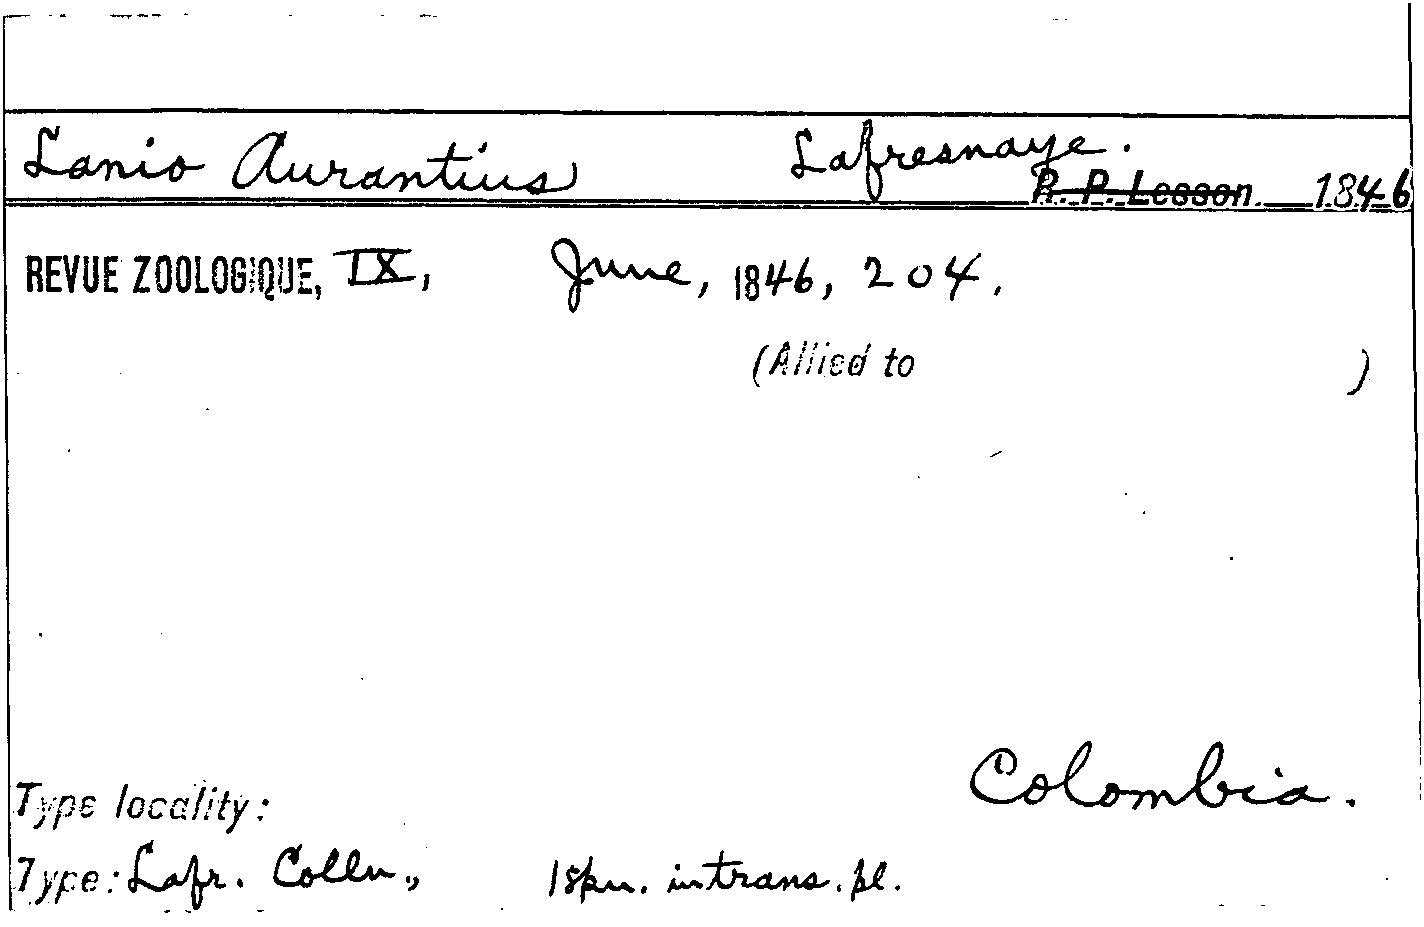 Lanio Aurantius Lafresnaye.
R. P. Lesson. 1846
REVUE ZOOLOGIQUE, IX, June, 1846, 204.
(Allied to )
Colombia.
Type locality:
Type: Lafr. Colln., 1 spn. in trans. pl.